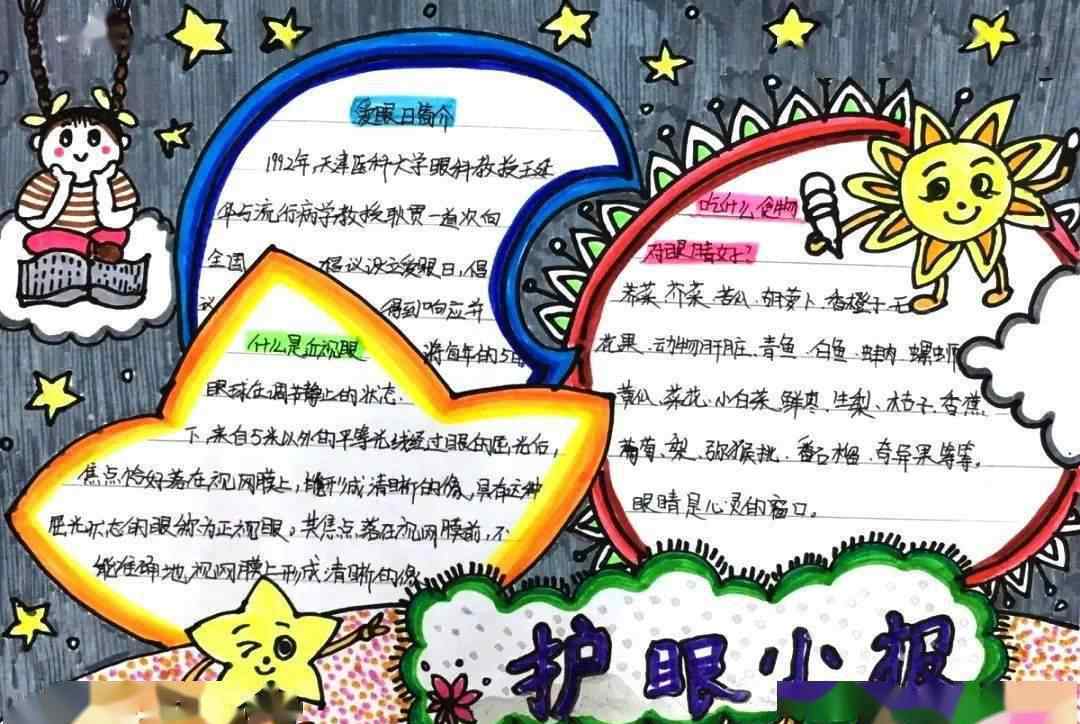 爱眼日简介
1992年,天津医科大学眼科教授王延
华与流行病学教授耿贯一首次向
全国 倡议设立爱眼日,倡
议 得到响应并
将每年的5月
什么是近视眼
眼球在调节静止的状态
下,来自5米以外的平等光线经过眼的屈光后,
焦点恰好落在视网膜上,能形成清晰的像,具有这种
屈光状态的眼称为正视眼。其焦点落在视网膜前,不
能准确地视网膜上形成清晰的像
吃什么食物
对眼睛好?
荠菜、芥菜、苦瓜、胡萝卜、香橙子、无
花果、动物肝脏、青鱼、白鱼、蚌肉、螺蛳
黄瓜、菜花、小白菜、鲜枣、生梨、桔子、香蕉,
葡萄、梨、弥猴桃、番石榴、奇异果等等。
眼睛是心灵的窗口。
护眼小报